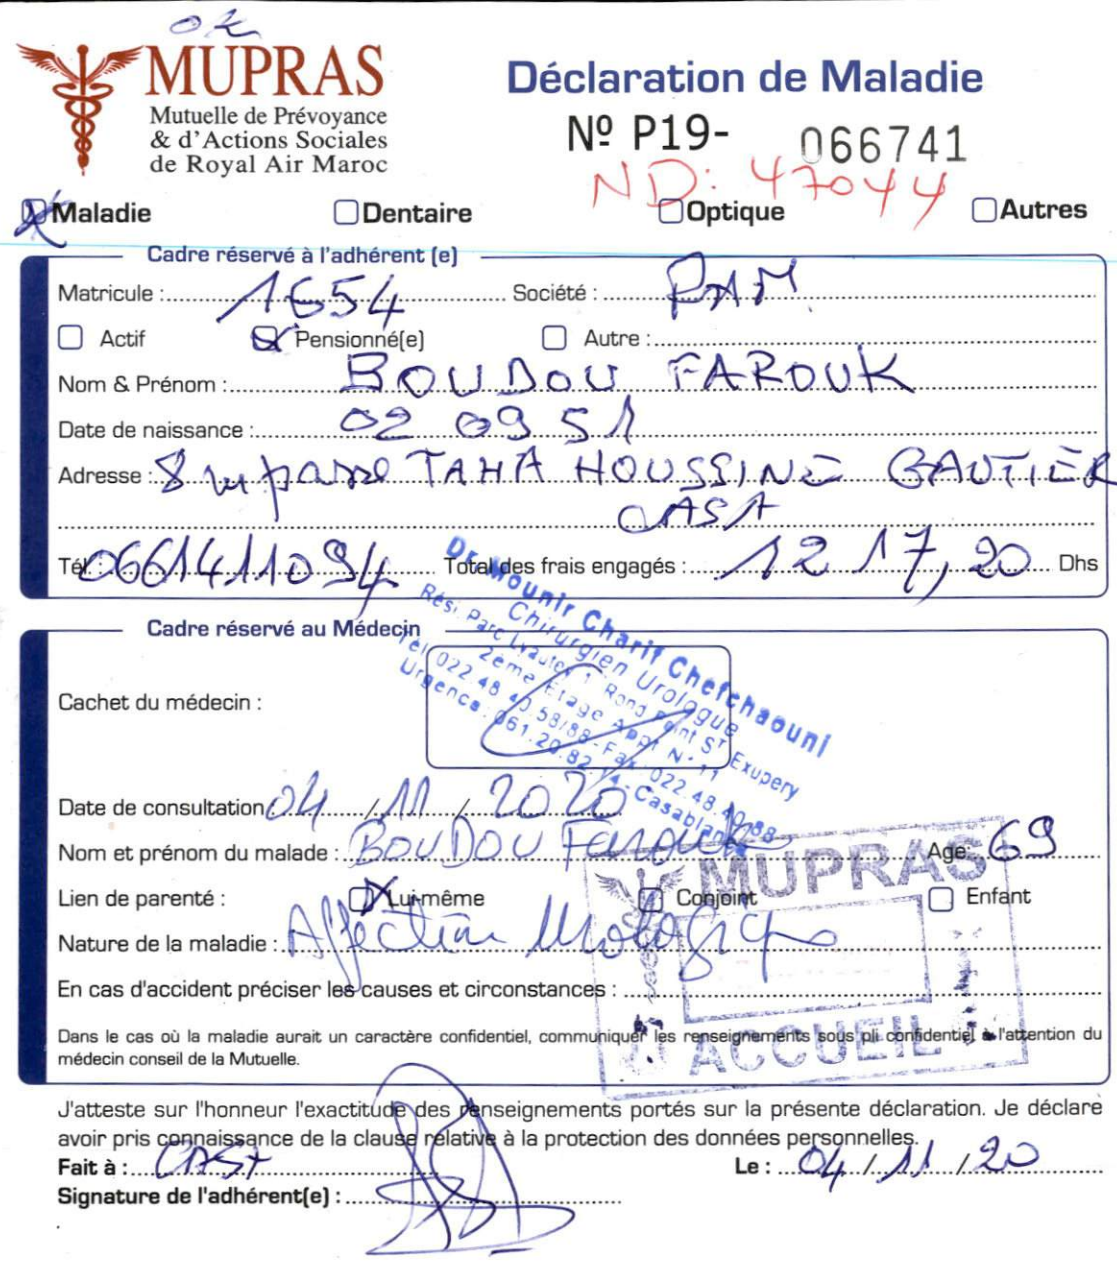 ok
MUPRAS
Mutuelle de Prévoyance
& d'Actions Sociales
de Royal Air Maroc
Déclaration de Maladie
Nº P19- 066741
ND: 47044
Maladie Dentaire Optique Autres
Cadre réservé à l'adhérent (e)
Matricule : 1654 Société : RAM
Actif Pensionné(e) Autre :
Nom & Prénom : BOUDOU FAROUK
Date de naissance : 02 09 51
Adresse : 8 impasse TAHA HOUSSINE GAUTIER
CASA
Tél : 0661411094 Total des frais engagés : 1217,20 Dhs
Cadre réservé au Médecin
Dr. Mounir Charif Chefchaouni
Chirurgien Urologue
Rési. Parc Lyautey 1, Rond Point ST Exupery
2ème Etage Appt N° 11
Tél 022.48.40.58/88-Fax 022.48.40.88
Urgence. 061.20.82.14-Casablanca
Cachet du médecin :
Date de consultation 04 / 11 / 2020
Nom et prénom du malade : BOUDOU Farouk Age: 69
Lien de parenté : Lui-même Conjoint Enfant
Nature de la maladie : Affection Urologique
En cas d'accident préciser les causes et circonstances :
MUPRAS
ACCUEIL
Dans le cas où la maladie aurait un caractère confidentiel, communiquer les renseignements sous pli confidentiel à l'attention du
médecin conseil de la Mutuelle.
J'atteste sur l'honneur l'exactitude des renseignements portés sur la présente déclaration. Je déclare
avoir pris connaissance de la clause relative à la protection des données personnelles.
Fait à : CASA Le : 04 / 11 / 20
Signature de l'adhérent(e) :